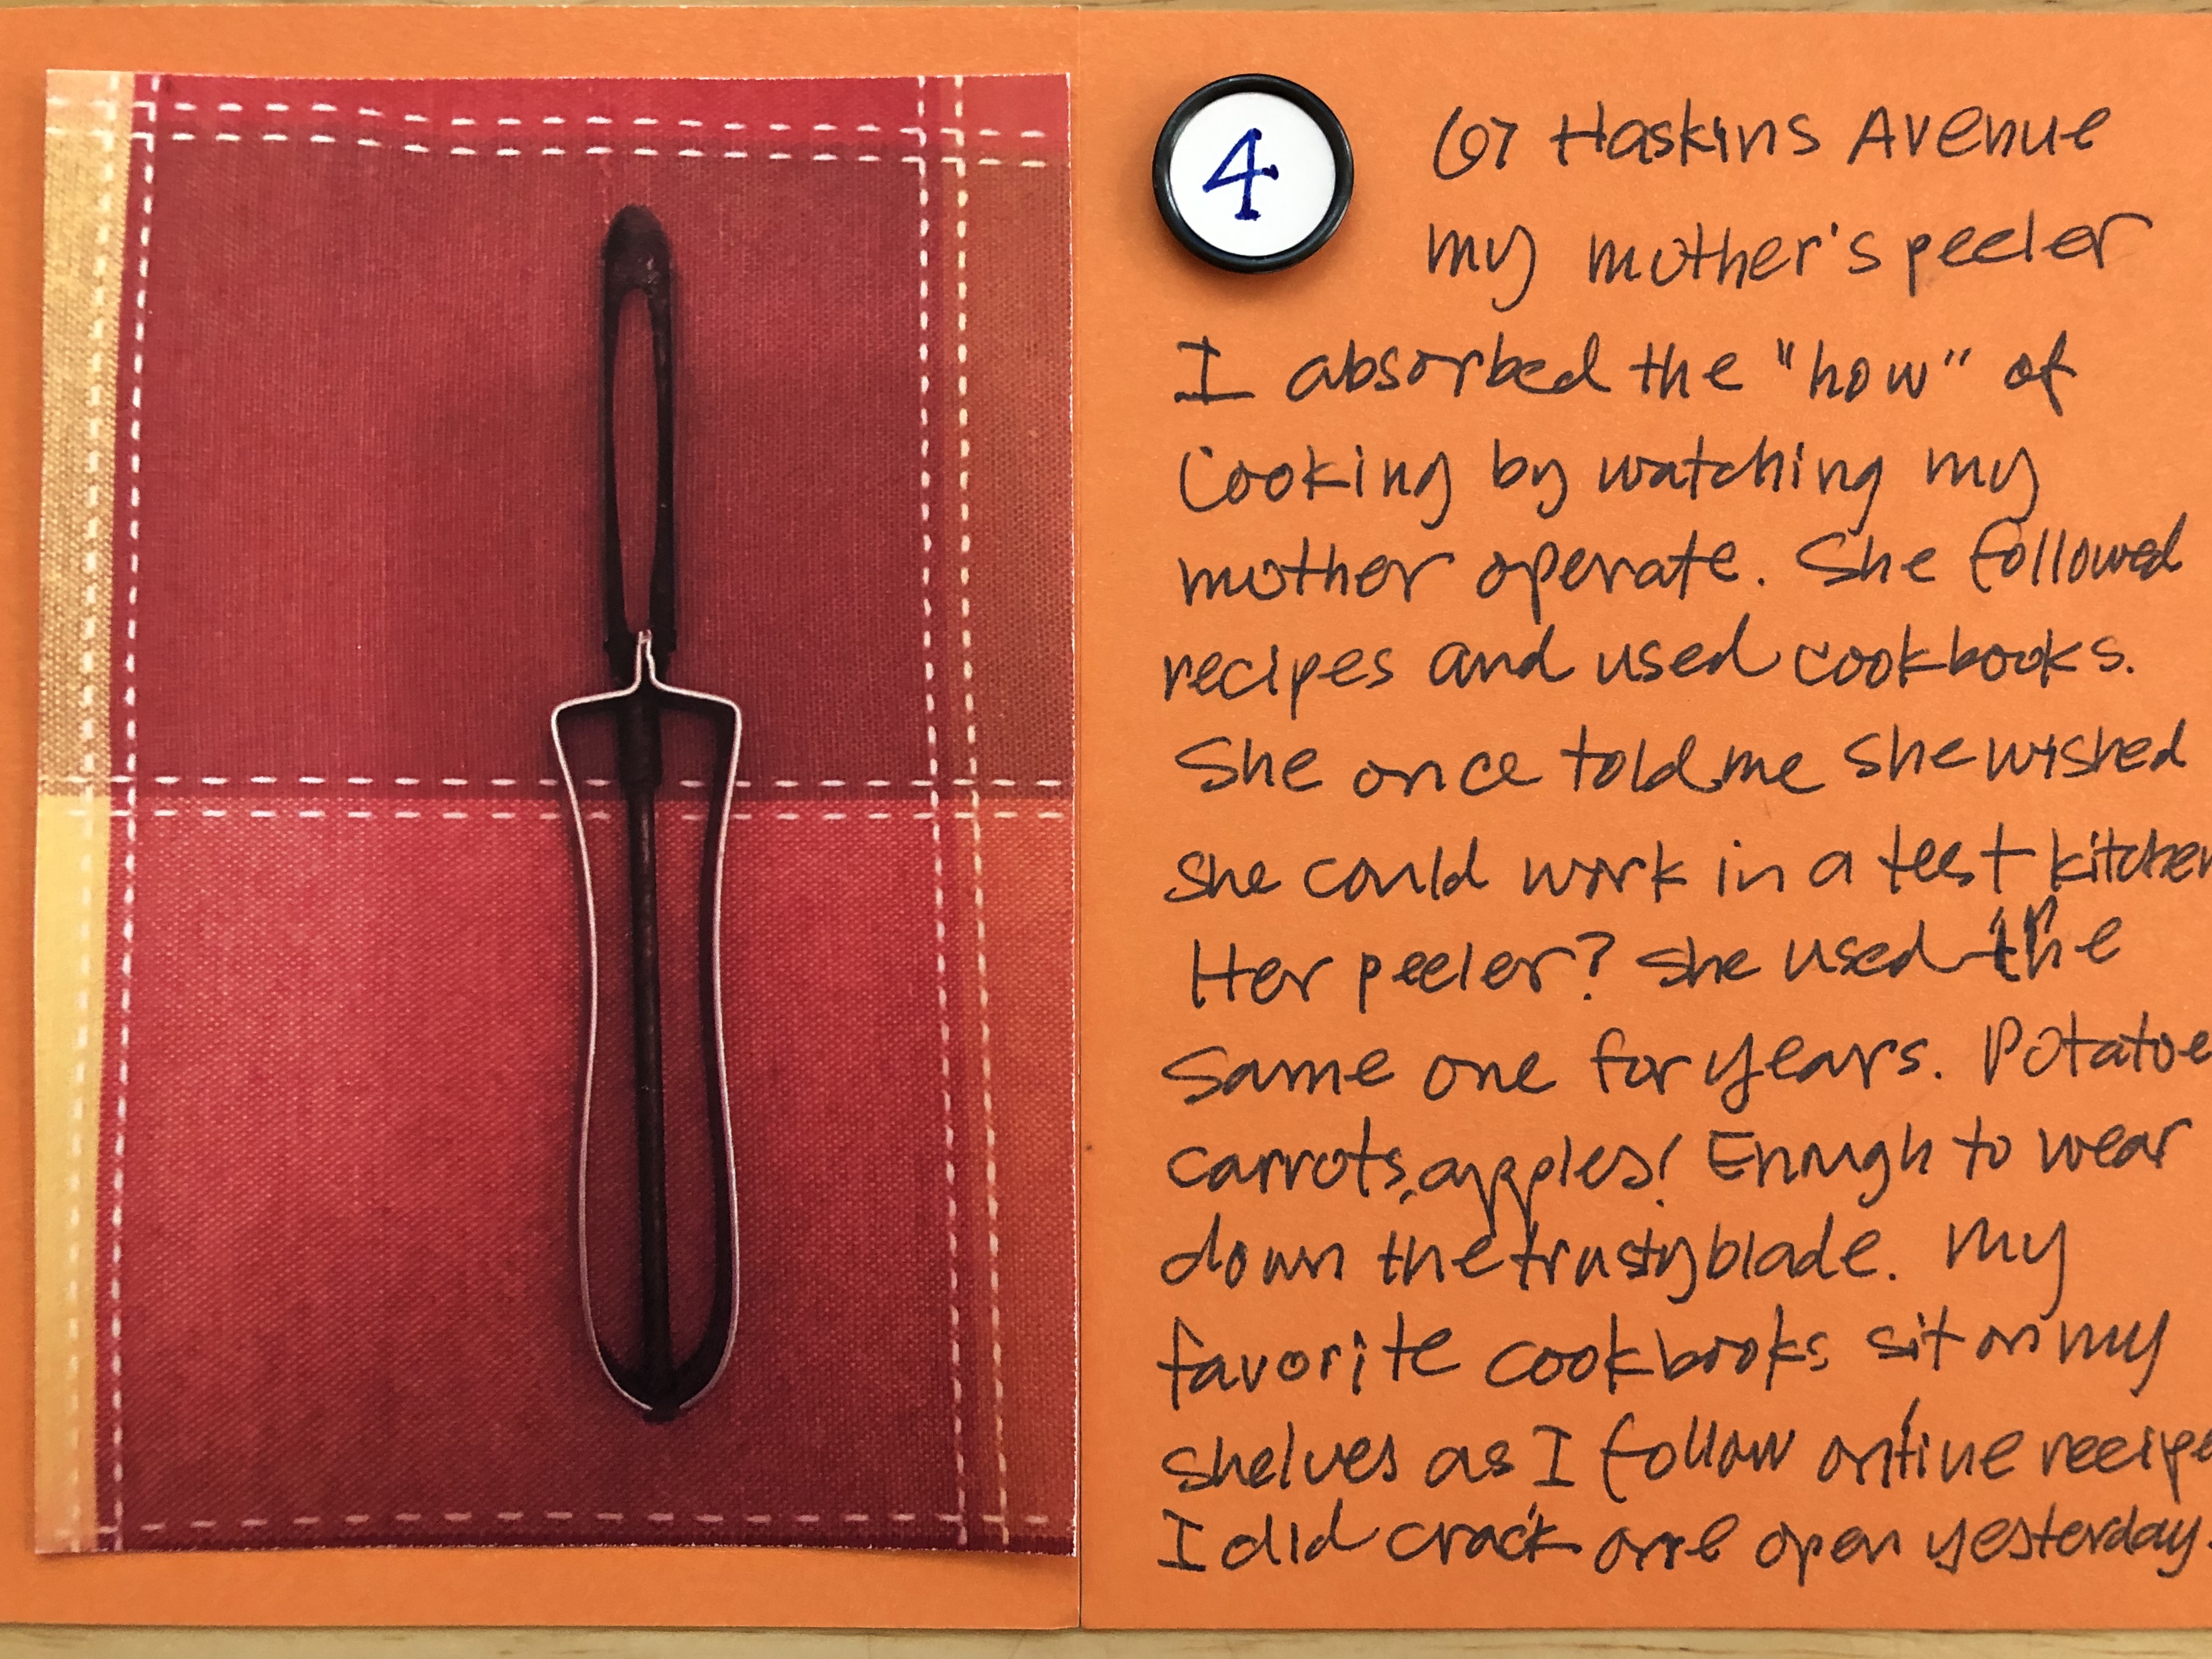 4
67 Haskins Avenue
my mother's peeler
I absorbed the "how" of
Cooking by watching my
mother operate. She followed
recipes and used cookbooks.
She once told me she wished
she could work in a test kitchen
Her peeler? She used the
same one for years. Potatoe
carrots, apples! Enough to wear
down the trusty blade. My
favorite cookbooks sit on my
shelves as I follow online recipe
I did crack one open yesterday.